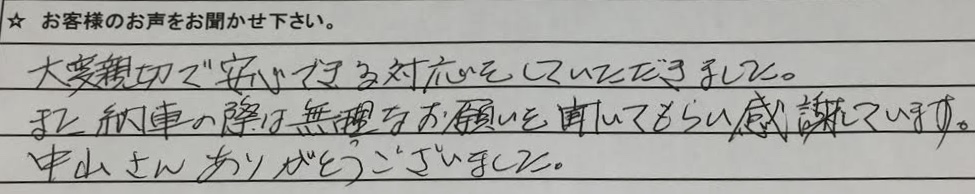 ☆ お客様のお声をお聞かせ下さい。
大変親切で安心できる対応をしていただきました。
また納車の際は無理なお願いを聞いてもらい感謝しています。
中山さんありがとうございました。